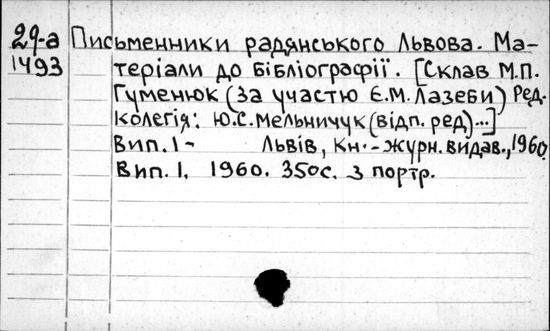 29-а Письменники радянського Львова. Ма-
1493 теріали до бібліографії. [Склав М.П.
Гуменюк (за участю Є.М. Лазеби) Ред.
колегія: Ю.С. Мельничук (відп. ред) ...]
Вип. 1 - Львів, Кн.-журн. видав., 1960.
Вип. 1. 1960. 350с. з портр.